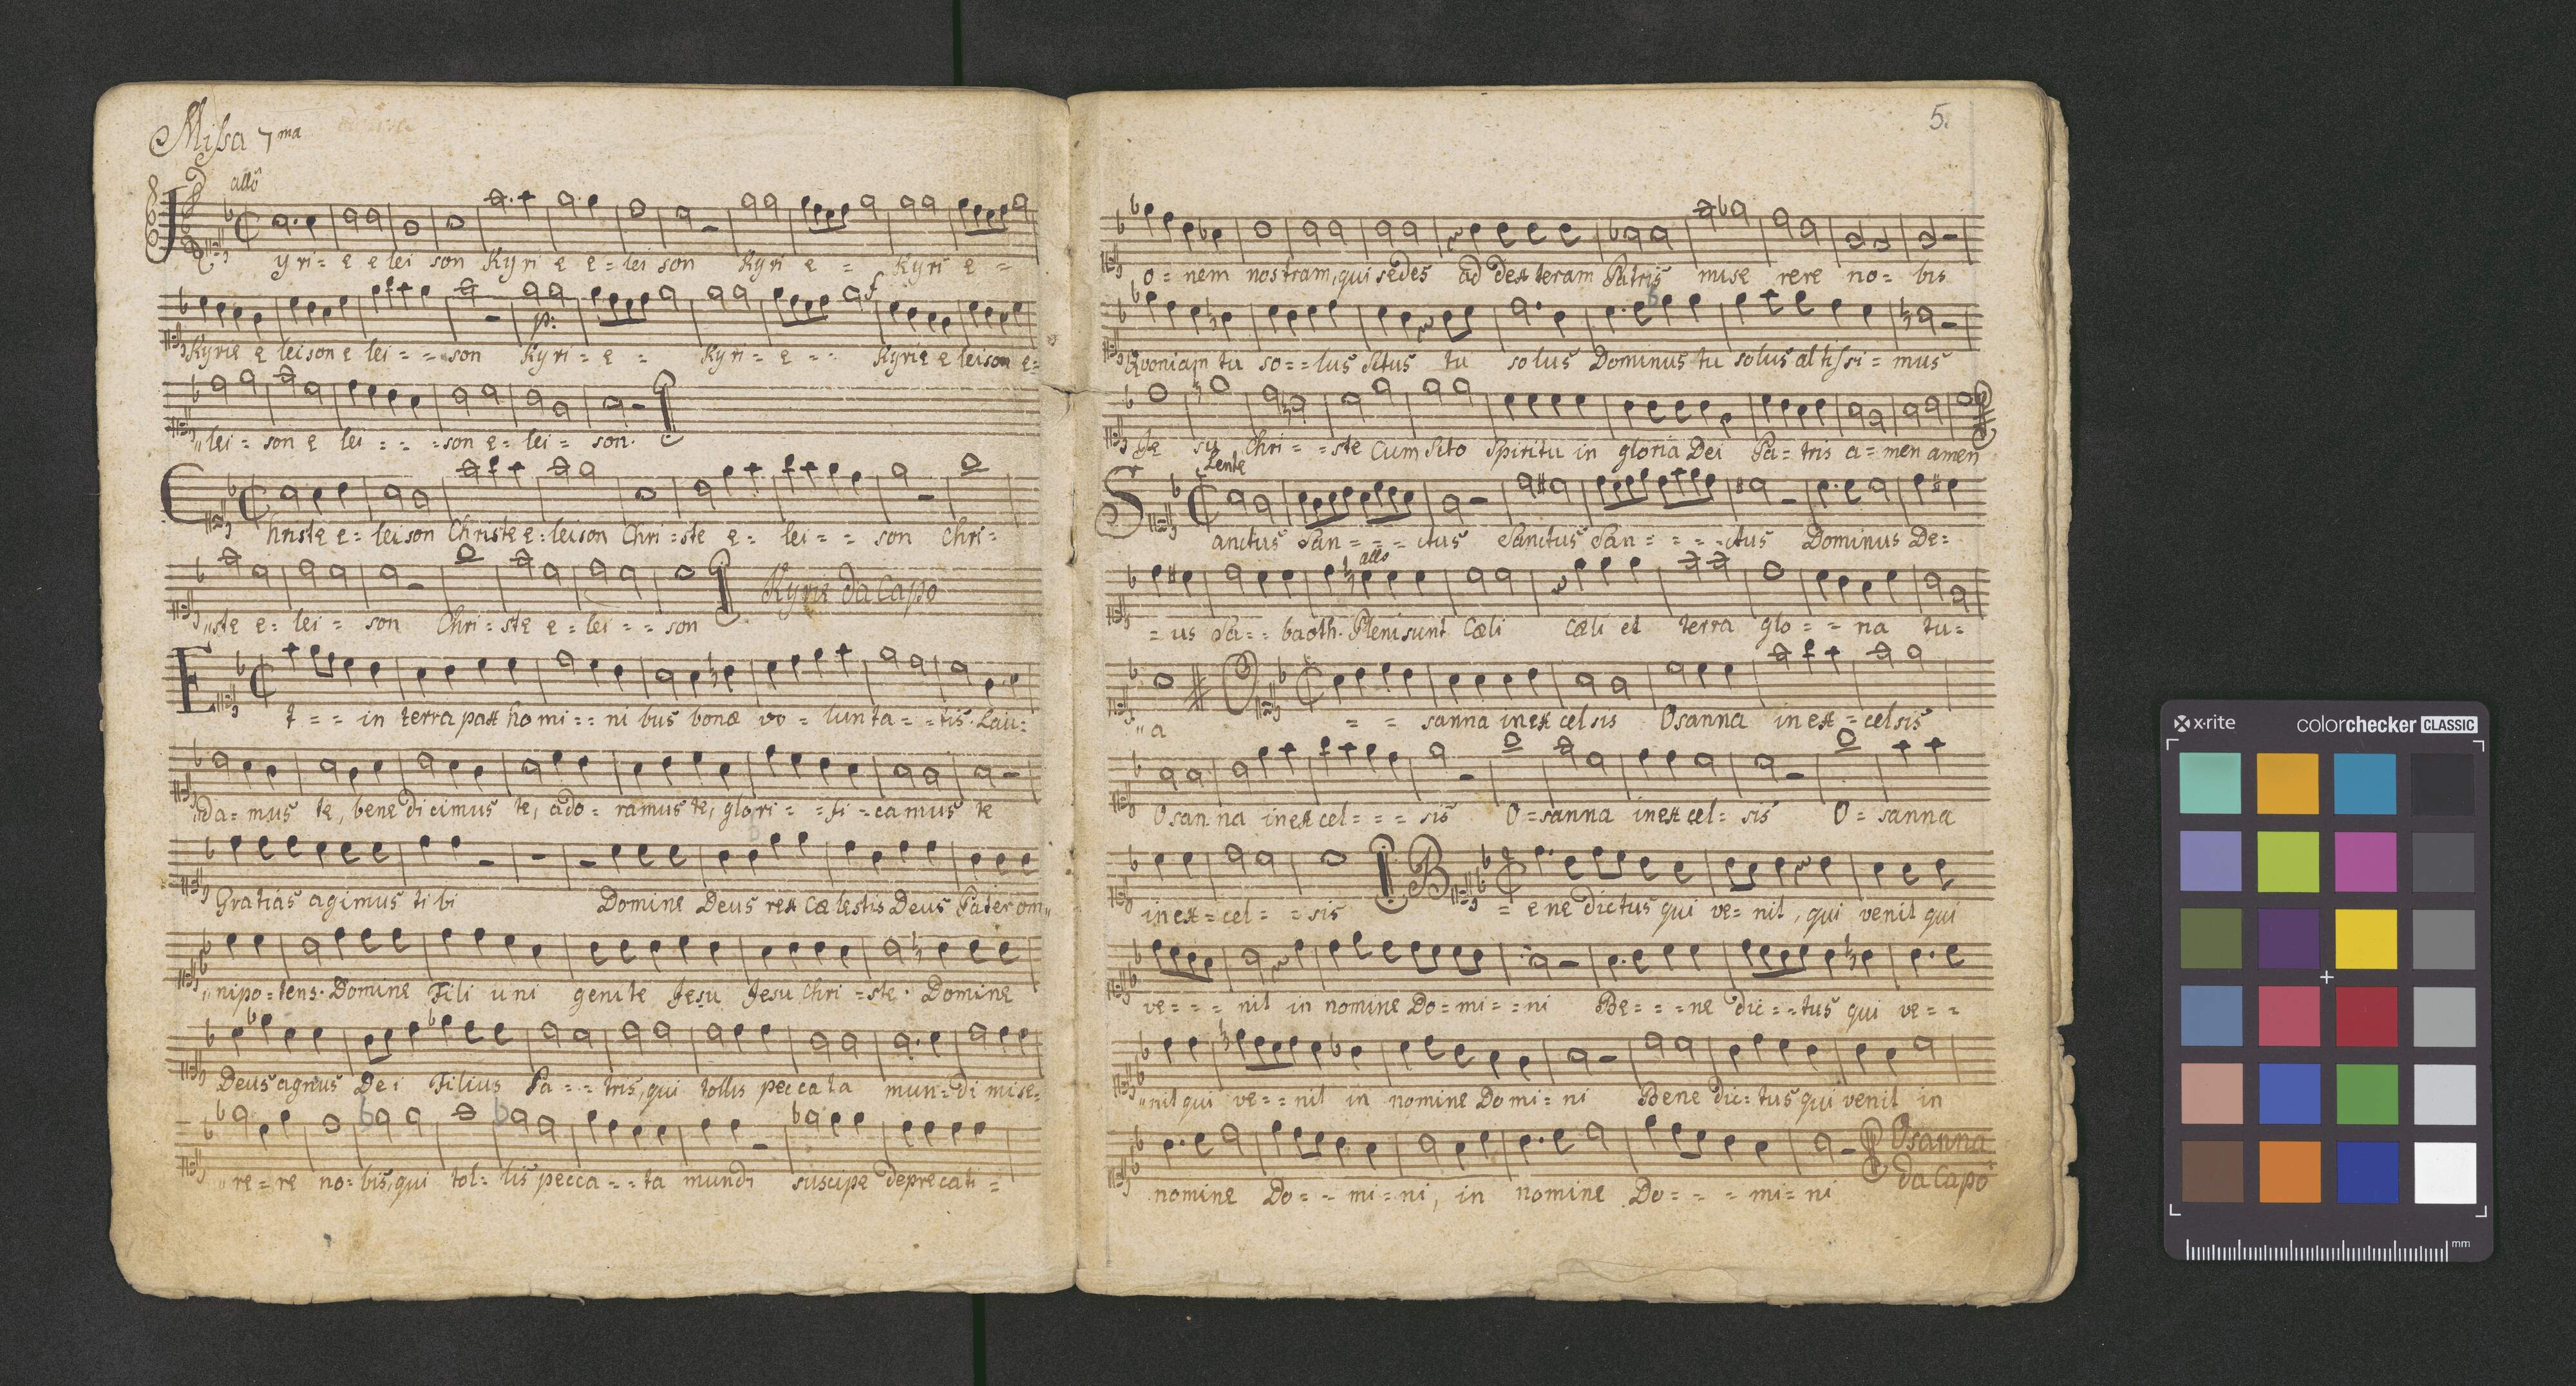 Missa 7ma
allo
Kyri=e elei son Kyri e e=lei son Kyri e = Kyri e =
p: f
Kyrie e leison e lei=-=son Kyri=e = Kyri=e -- Kyrie e leison e=
"lei=son e lei=-=son e=lei=son.
Christe e=leison Christe e=leison Chri=ste e=lei=-son Chri=
"ste e=lei=son Chri=ste e=lei=-son Kyrie da Capo
Et=-in terra pax homi=-ni bus bonæ vo=lunta=-tis. Lau=
"da=mus te, bene dicimus te, ado=ramus te, glori=-fi=camus te
Gratias agimus tibi Domine Deus rex Cælestis Deus Pater om"
"nipo=tens. Domine Fili uni genite Jesu Jesu Chri=ste. Domine
Deus agnus Dei Filius Pa=-tris, qui tollis peccata mun=di mise=
"re=re no=bis, qui tol=lis pecca=-ta mundi suscipe deprecati=
5.
o=nem nostram, qui sedes ad dexteram Patris mise rere no=bis
Quoniam tu so=-lus Sctus tu solus Dominus tu solus altissi=mus
Je su Chri=-ste Cum Scto Spiritu in gloria Dei Pa=tris a=men amen
Lente
Sanctus San=-=-ctus Sanctus San=-=-ctus Dominus De=
allo
=us Sa=-baoth. Pleni sunt Cæli Cæli et terra glo=-ria tu=
"a O=-sanna in excelsis Osanna in ex=celsis
Osanna in excel=-=-sis O=sanna in excel=sis O=sanna
in ex=cel=-=sis B=ene dictus qui ve=nit, qui venit qui
ve=-=-nit in nomine Do=mi=-ni Be=-=ne dic=-tus qui ve=-
"nit qui ve=-nit in nomine Domi=ni Bene dic=tus qui venit in
nomine Do=-mi=ni, in nomine Do=-=-mi=ni Osanna
da Capo
x·rite colorchecker CLASSIC
mm